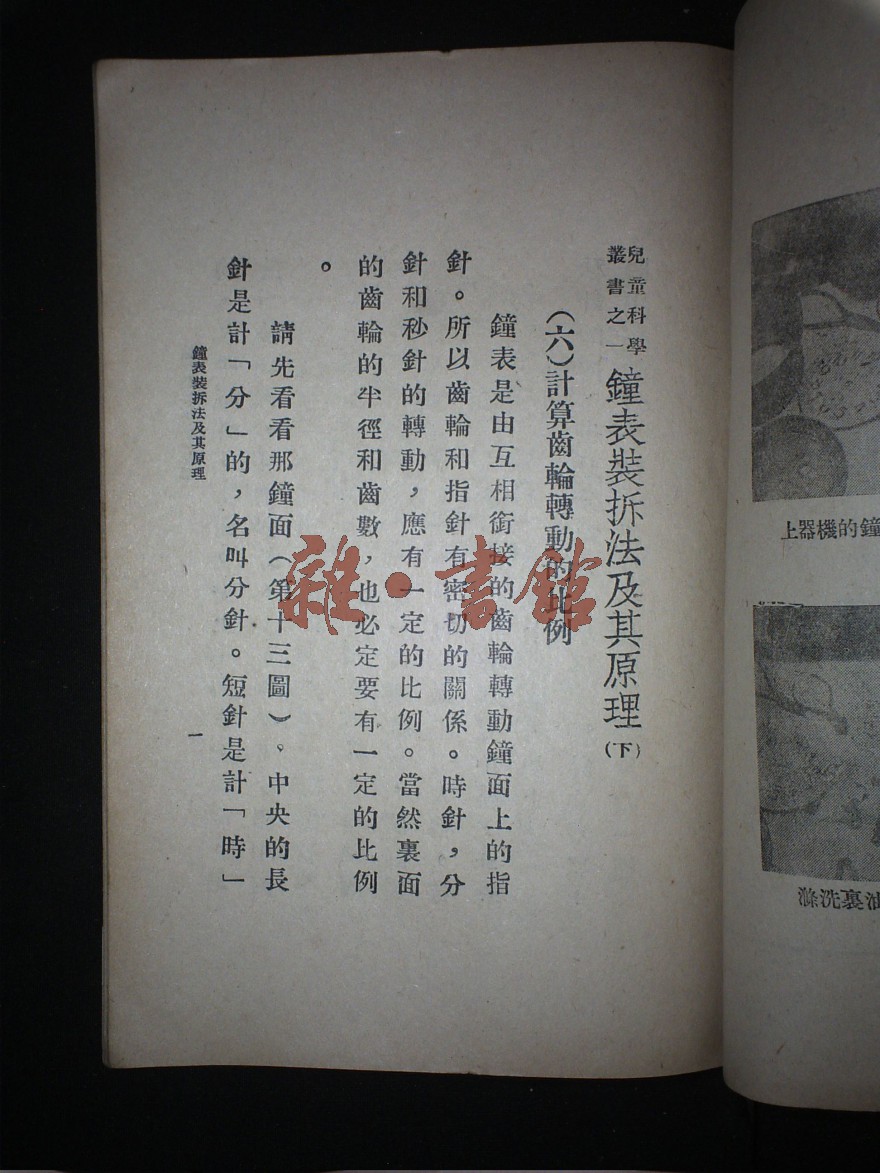 鐘的機器上
油裏洗滌
兒童科學
叢書之一
鐘表裝拆法及其原理(下)
(六)計算齒輪轉動的比例
鐘表是由互相銜接的齒輪轉動鐘面上的指
針。所以齒輪和指針有密切的關係。時針,分
針和秒針的轉動,應有一定的比例。當然裏面
的齒輪的半徑和齒數,也必定要有一定的比例
。
請先看看那鐘面(第十三圖)。中央的長
針是計「分」的,名叫分針。短針是計「時」
鐘表裝拆法及其原理
一
雜·書館